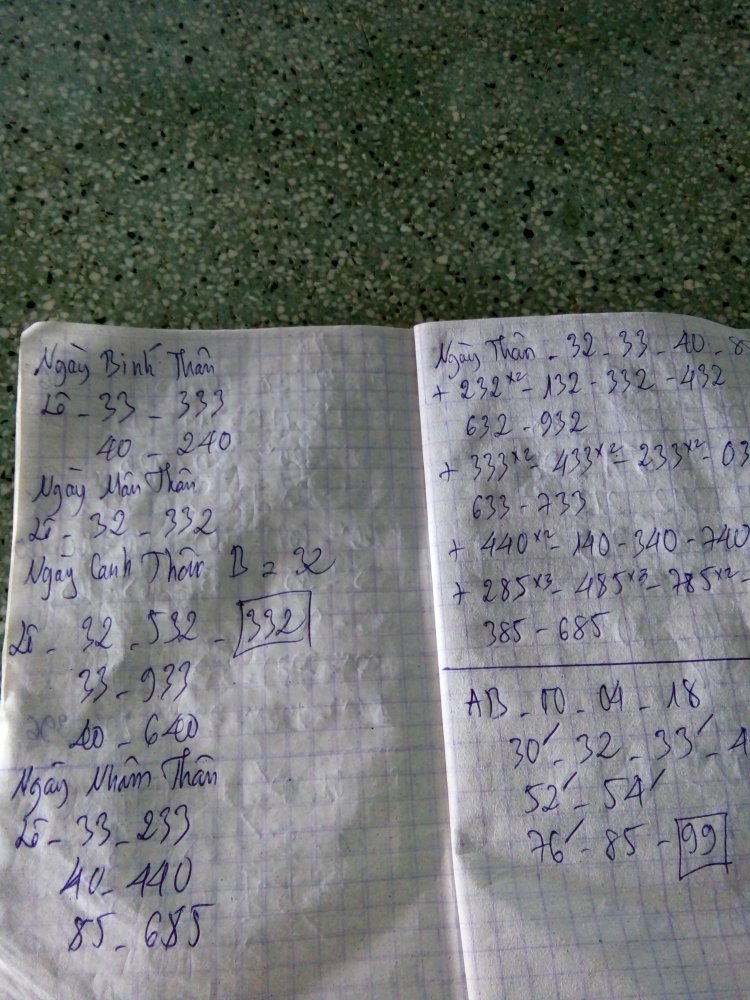 Ngày Bính Thân
Lô - 33 - 333
40 - 240
Ngày Mân Thân
Lô - 32 - 332
Ngày Canh Thân B = 32
Lô - 32 - 532 - 332
33 - 933
40 - 640
Ngày Nhâm Thân
Lô - 33 - 233
40 - 440
85 - 685
Ngày Thân - 32 - 33 - 40 - 8
+ 232x2 - 132 - 332 - 432
632 - 932
+ 333x2 - 433x2 - 233x2 - 03
633 - 733
+ 440x2 - 140 - 340 - 740
+ 285x3 - 485x3 - 785x2 -
385 - 685
AB - 00 - 04 - 18
30' - 32 - 33' - 4
52' - 54'
76' - 85 - 99